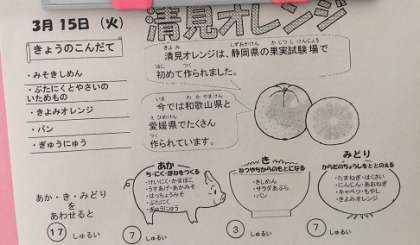 3月 15日（火）
清見オレンジ
きょうのこんだて
・みそきしめん
・ぶたにくとやさいの
いためもの
・きよみオレンジ
・パン
・ぎゅうにゅう
清見オレンジは、静岡県の果実試験場で
初めて作られました。
今では和歌山県と
愛媛県でたくさん
作られています。
あか・き・みどり
をあわせると
17 しゅるい
あか
ち・にく・ほねをつくる
・けいにく・かまぼこ
・うすあげ・あかみそ
・はっちょうみそ
・ぶたにく
・ぎゅうにゅう
7 しゅるい
き
ねつやちからのもとになる
・きしめん
・サラダあぶら
・パン
3 しゅるい
みどり
からだのちょうしをととのえる
・たまねぎ・はくさい
・にんじん・あおねぎ
・キャベツ・もやし
・きよみオレンジ
7 しゅるい